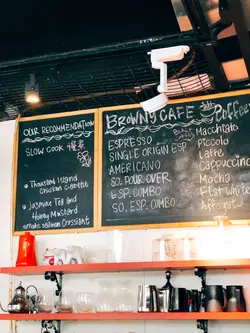 OUR RECOMMENDATION
SLOW COOK 慢煮
• THOUSAND ISLAND
CHICKEN CIABATTE
• JASMINE TEA AND
HONEY MUSTARD
SALMON CROISSANT
BROWNY CAFE
ESPRESSO
SINGLE ORIGIN ESP.
AMERICANO
SO. POUR OVER
ESP. COMBO
SO. ESP. COMBO
Coffee
Macchiato
Piccolo
Latte
Cappuccino
Mocha
Flat White
Affogato